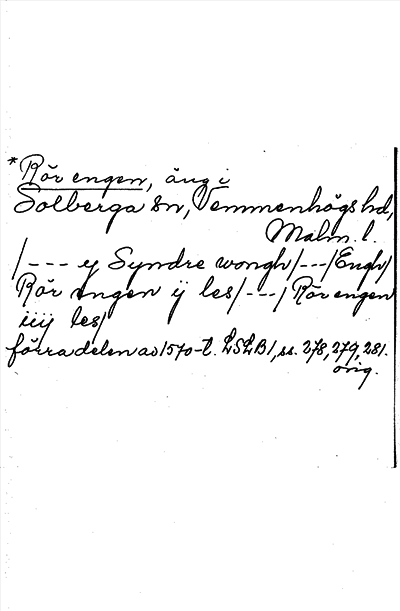 *Rör engen, äng i
Solberga sn, Vemmenhögs hd,
Malm. l.
/--- y Syndre wongh/---/Engh/
Rör engen ÿ les/---/Rör engen
iiij les/
förra delen av 1570-t. LSLB1, ss. 278, 279, 281.
orig.